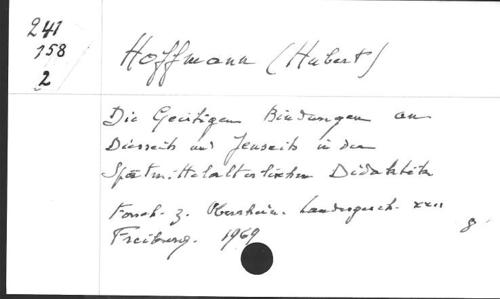 241
158
2
Hoffmann (Hubert)
Die Geistigen Bindungen an
Diesseits und Jenseits in der
Spätmittelalterlichen Didaktik
Forsch. z. Oberrhein. Landesgesch. XXII
Freiburg. 1969
8